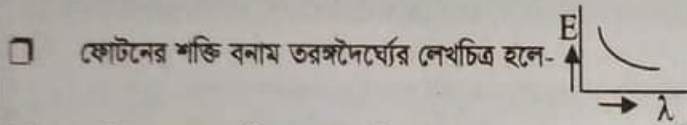 ফোটনের শক্তি বনাম তরঙ্গদৈর্ঘ্যের লেখচিত্র হলে- E
λ